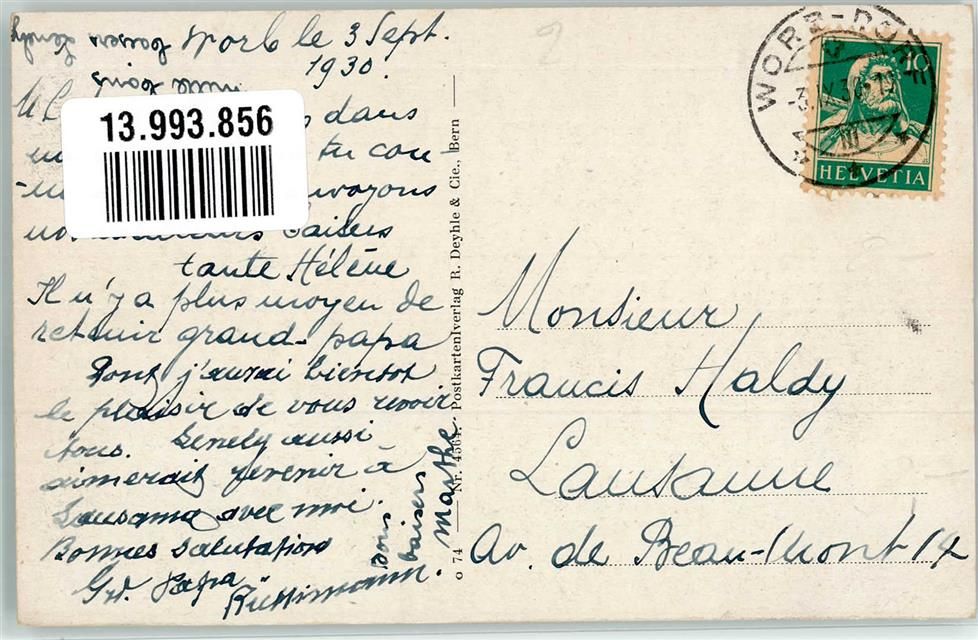 Worb le 3 Sept.
1930.
dans
tu con-
-voyons
nos meilleurs baisers
tante Hélène
Il n'y a plus moyen de
retenir grand-papa
Dont j'aurai bientot
le plaisir de vous revoir
tous. aussi
aimerait revenir à
avec moi.
Bonnes salutations
Gd. Papa
bons
baisers
Marthe
13.993.856
o 74 — Nr. 4564. Postkartenverlag R. Deyhle & Cie., Bern
WORB-DORF
10
HELVETIA
Monsieur
Francis Haldy
Lausanne
Av. de Beau-Mont 14